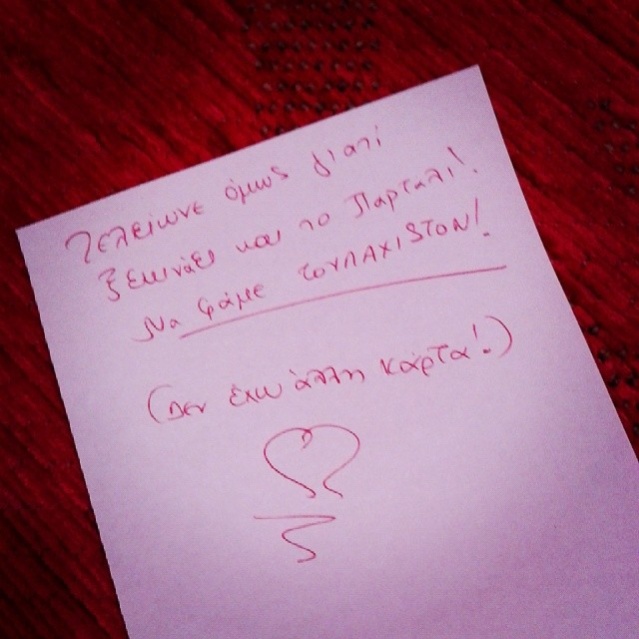 Τελείωνε όμως γιατί
ξεκινάει και το Παρταλι!
Να φάμε ΤΟΥΛΑΧΙSTON!
(Δεν έχω άλλη κάρτα!)